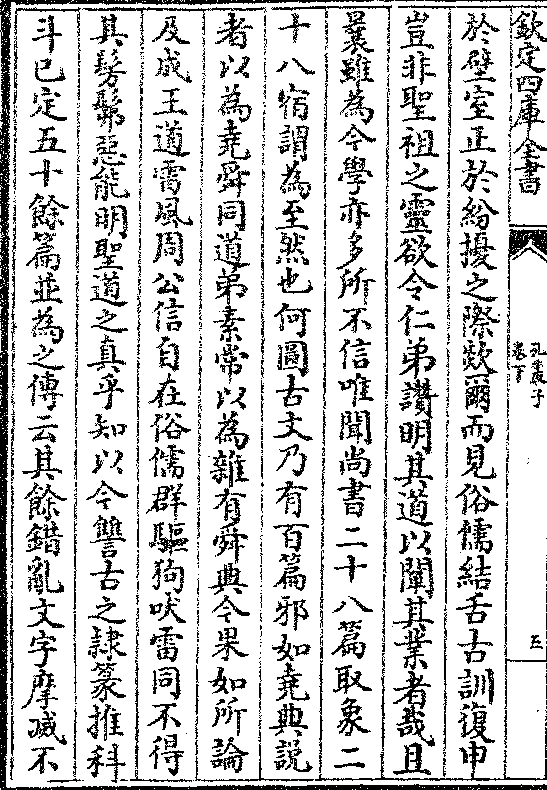 欽定四庫全書
孔叢子
卷下
五
於壁室正於紛擾之際欻爾而見俗儒結舌古訓復申
豈非聖祖之靈欲令仁弟讚明其道以闡其業者哉且
曩雖為今學亦多所不信唯聞尚書二十八篇取象二
十八宿謂為至然也何圖古文乃有百篇邪如堯典說
者以為堯舜同道弟素常以為雜有舜典今果如所論
及成王道雷風周公信自在俗儒群驅狗吠雷同不得
其髣髴惡能明聖道之真乎知以今讐古之隷篆推科
斗已定五十餘篇並為之傳云其餘錯亂文字摩滅不